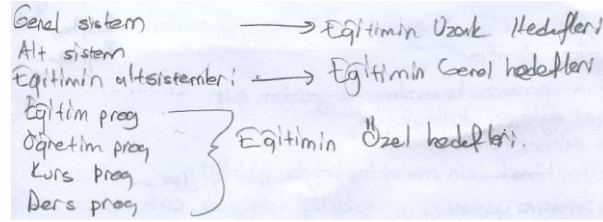 Genel sistem → Eğitimin Uzak Hedefleri
Alt sistem
Eğitimin altsistemleri → Eğitimin Genel hedefleri
Eğitim prog
Öğretim prog
Kurs prog
Ders prog
Eğitimin Özel hedefleri.